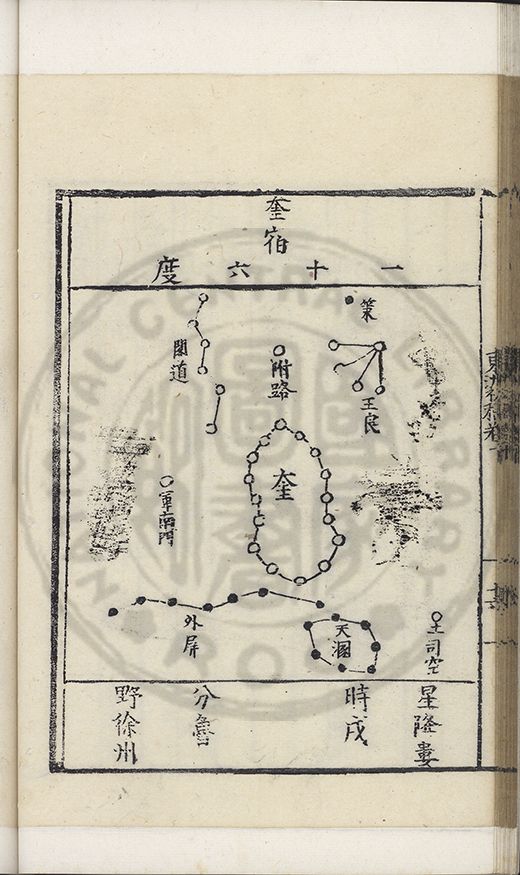 奎宿
一十六度
策
王良
附路
閣道
奎
軍南門
土司空
天溷
外屏
星降婁
時戌
分魯
野徐州